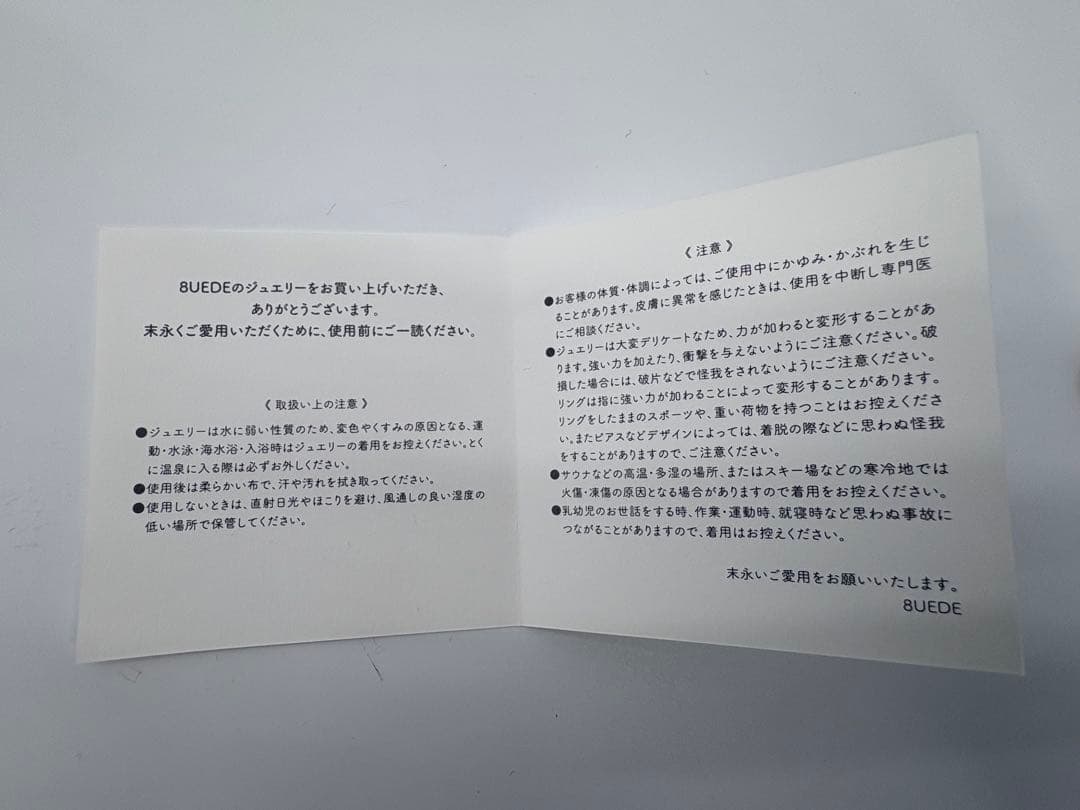 8UEDEのジュエリーをお買い上げいただき、
ありがとうございます。
末永くご愛用いただくために、使用前にご一読ください。
《 取扱い上の注意 》
●ジュエリーは水に弱い性質のため、変色やくすみの原因となる、運
動・水泳・海水浴・入浴時はジュエリーの着用をお控えください。とく
に温泉に入る際は必ずお外しください。
●使用後は柔らかい布で、汗や汚れを拭き取ってください。
●使用しないときは、直射日光やほこりを避け、風通しの良い湿度の
低い場所で保管してください。
《 注意 》
●お客様の体質・体調によっては、ご使用中にかゆみ・かぶれを生じ
ることがあります。皮膚に異常を感じたときは、使用を中断し専門医
にご相談ください。
●ジュエリーは大変デリケートなため、力が加わると変形することがあ
ります。強い力を加えたり、衝撃を与えないようにご注意ください。破
損した場合には、破片などで怪我をされないようにご注意ください。
リングは指に強い力が加わることによって変形することがあります。
リングをしたままのスポーツや、重い荷物を持つことはお控えくださ
い。またピアスなどデザインによっては、着脱の際などに思わぬ怪我
をすることがありますので、ご注意ください。
●サウナなどの高温・多湿の場所、またはスキー場などの寒冷地では
火傷・凍傷の原因となる場合がありますので着用をお控えください。
●乳幼児のお世話をする時、作業・運動時、就寝時など思わぬ事故に
つながることがありますので、着用はお控えください。
末永いご愛用をお願いいたします。
8UEDE